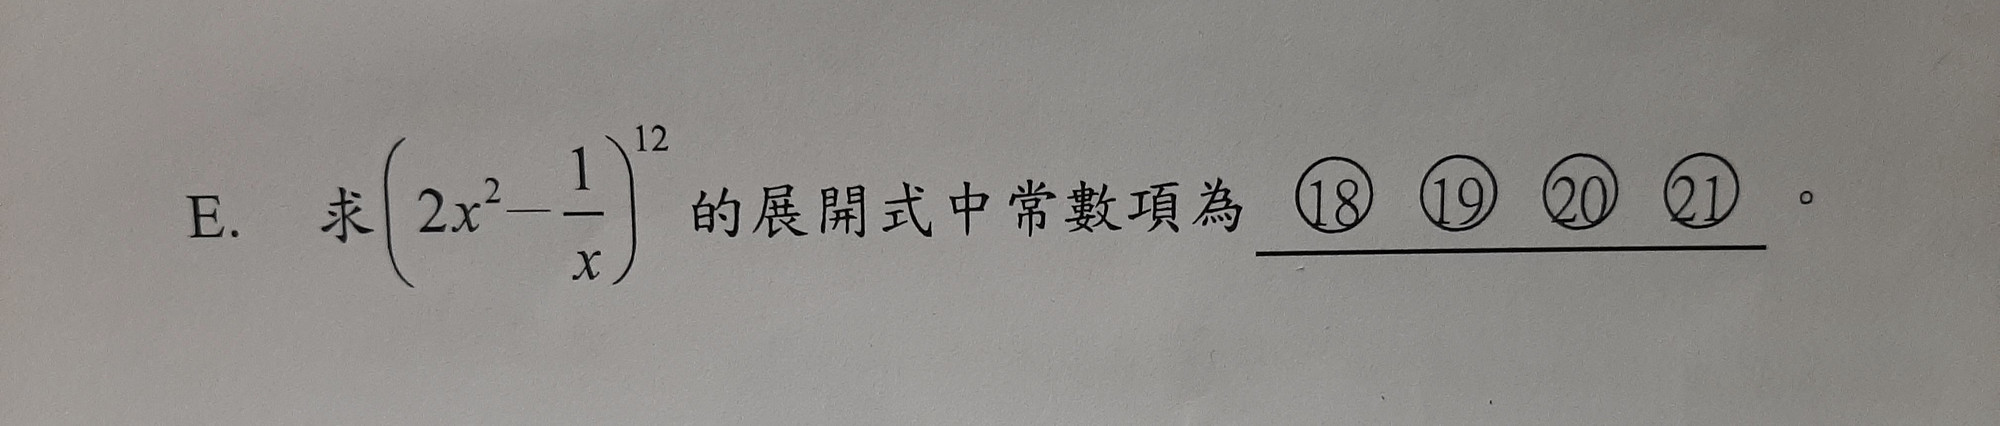 E. 求(2x²－1/x)¹² 的展開式中常數項為 ⑱ ⑲ ⑳ ㉑ 。